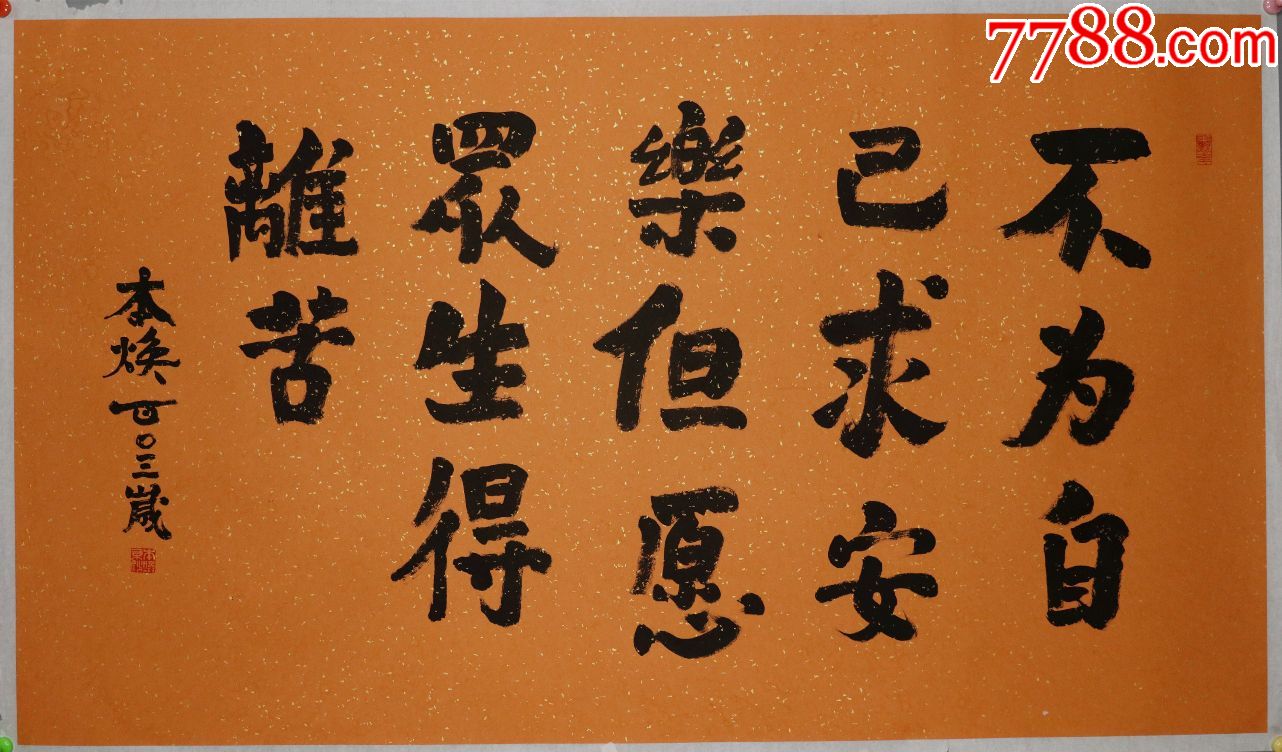 不为自
己求安
樂但愿
眾生得
離苦
本焕百〇三歲
7788.com